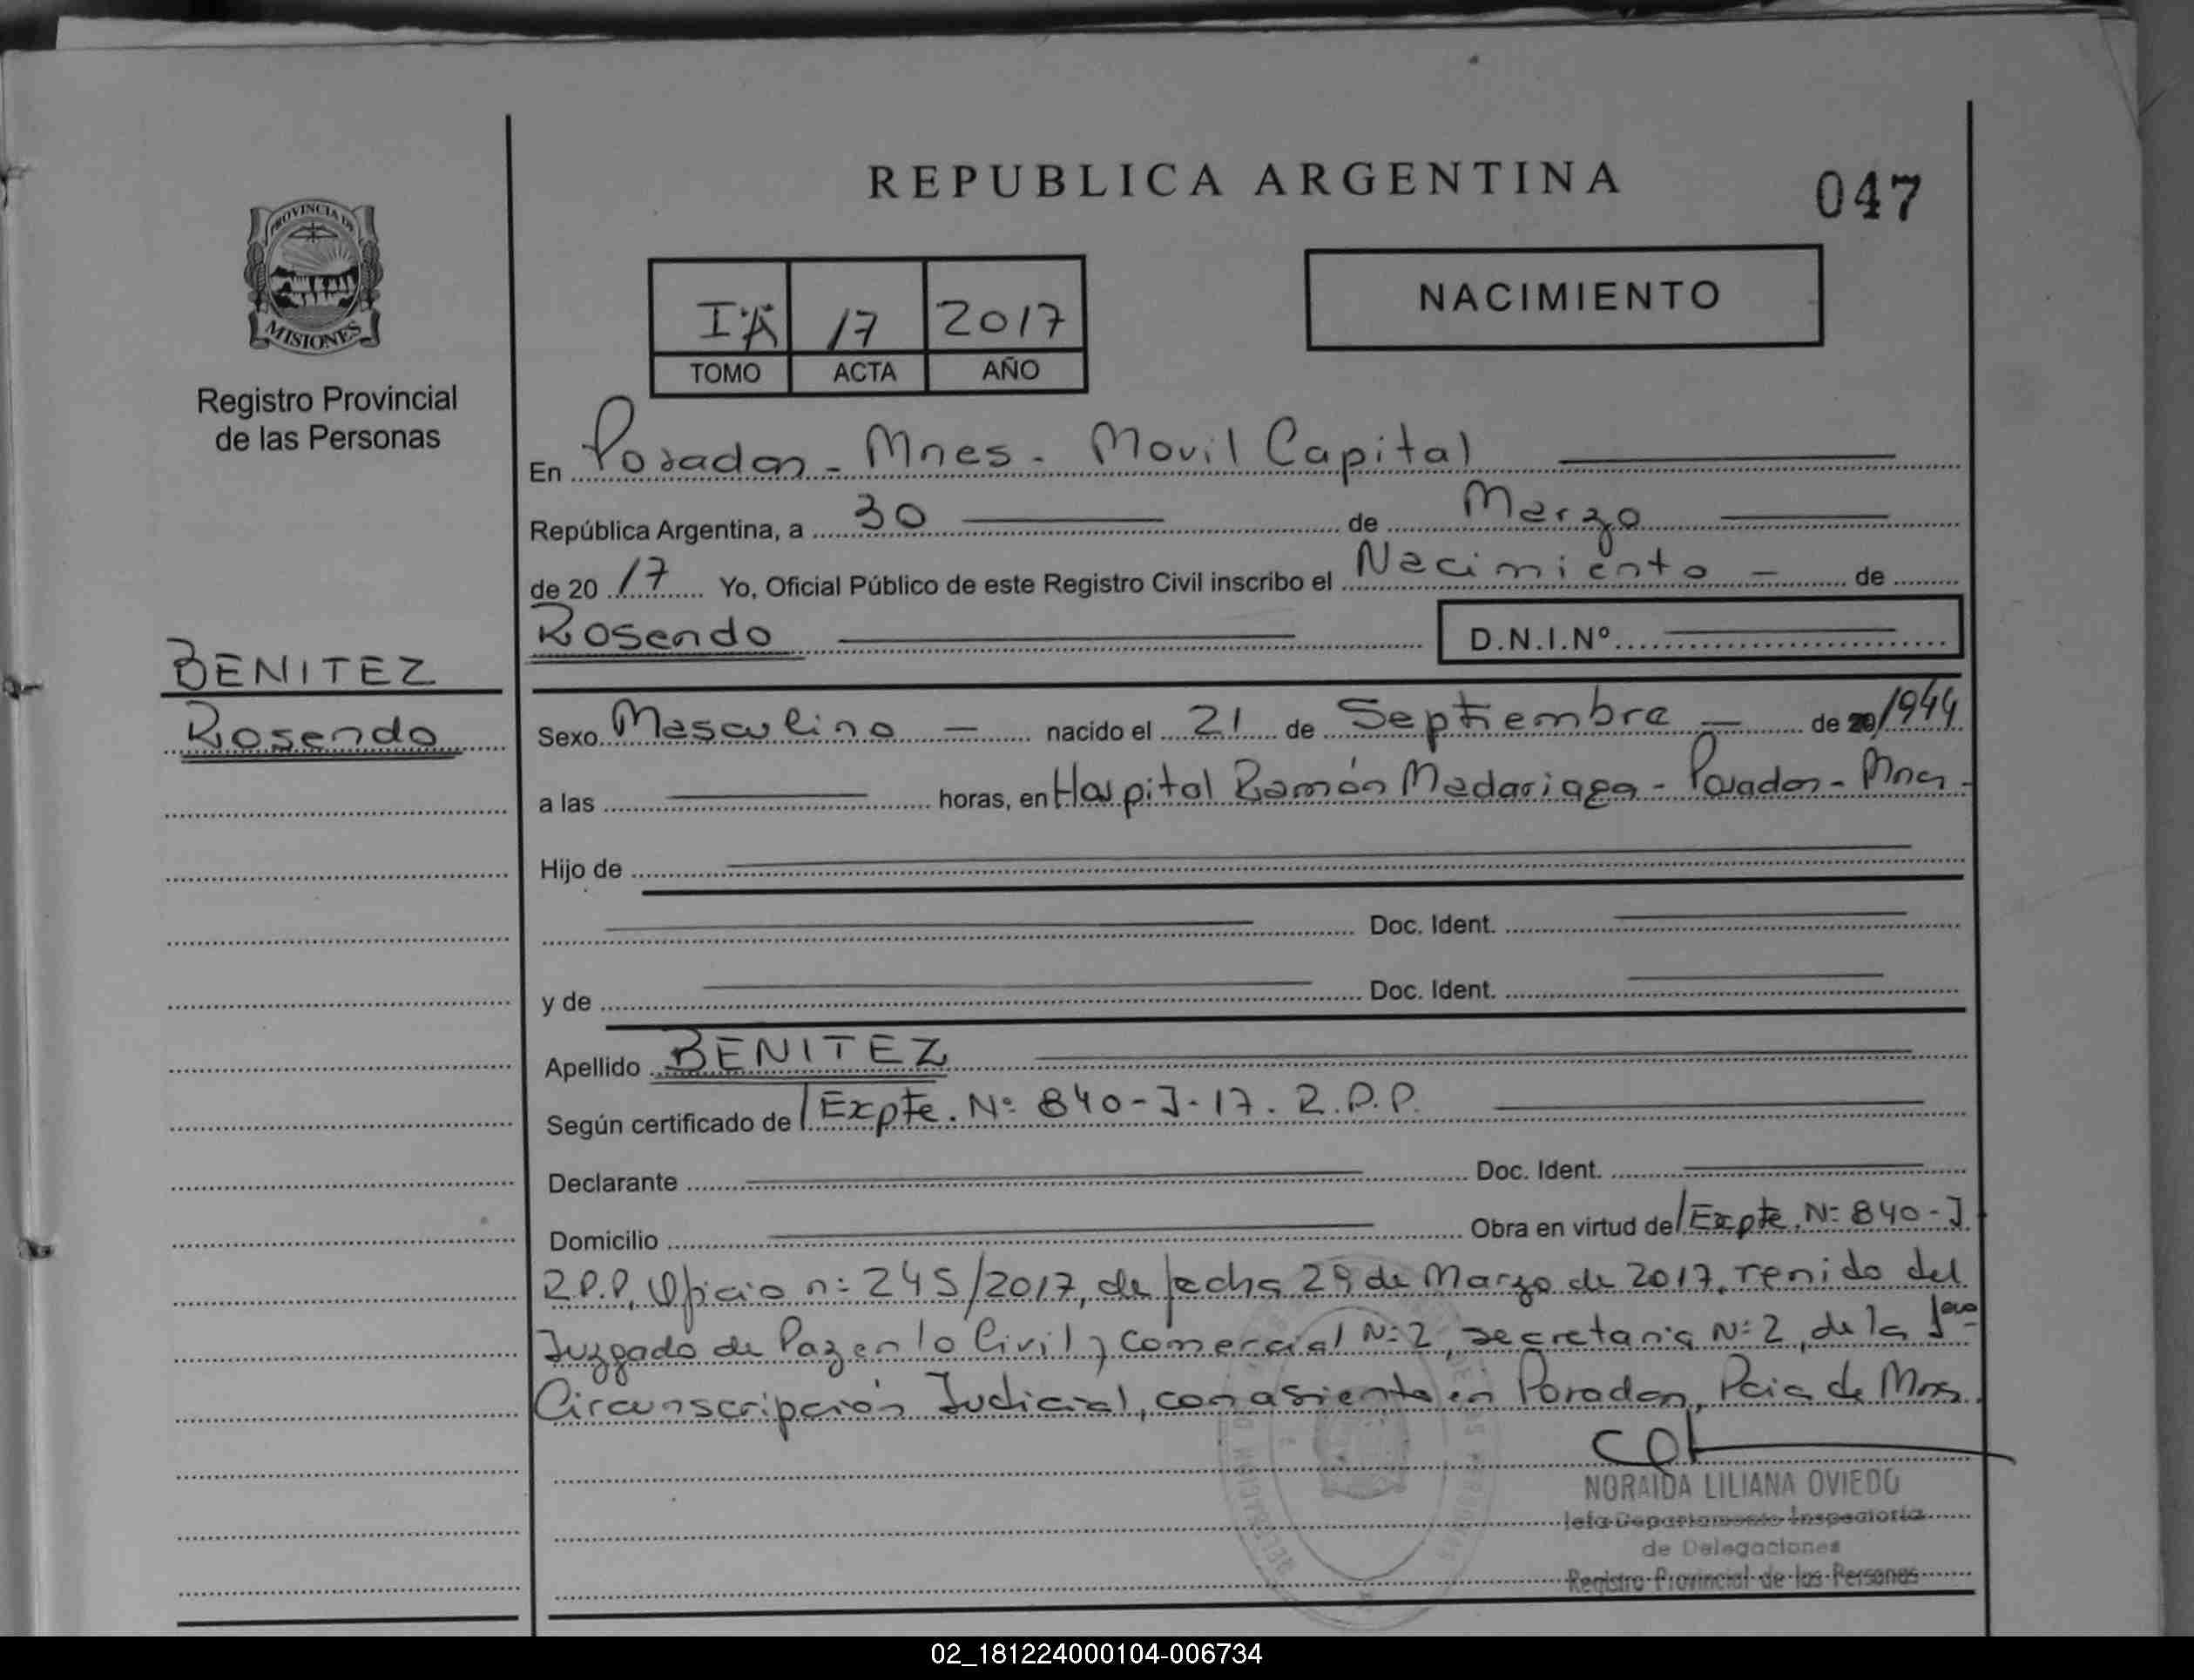 REPUBLICA ARGENTINA
047
PROVINCIA DE
MISIONES
Registro Provincial
de las Personas
I "A" 17 2017
TOMO ACTA AÑO
NACIMIENTO
En Posadas - Mnes - Movil Capital
República Argentina, a 30 de Marzo
de 20 17 Yo, Oficial Público de este Registro Civil inscribo el Nacimiento - de
Rosendo D.N.I.Nº
BENITEZ
Rosendo
Sexo Masculino - nacido el 21 de Septiembre - de 20/1944
a las horas, en Hospital Ramón Madariaga - Posadas - Mnes -
Hijo de
Doc. Ident.
y de Doc. Ident.
Apellido BENITEZ
Según certificado de / Expte. Nº 840-J-17. R.P.P.
Declarante Doc. Ident.
Domicilio Obra en virtud de / Expte. Nº 840-J
R.P.P, Oficio nº 245/2017, de fecha 29 de Marzo de 2017, venido del
Juzgado de Paz en lo Civil y Comercial Nº 2, secretaria Nº 2, de la 1era
Circunscripción Judicial, con asiento en Posadas, Pcia de Mnes.
NORAIDA LILIANA OVIEDO
Jefa Departamento Inspectoría
de Delegaciones
Registro Provincial de las Personas
02_181224000104-006734